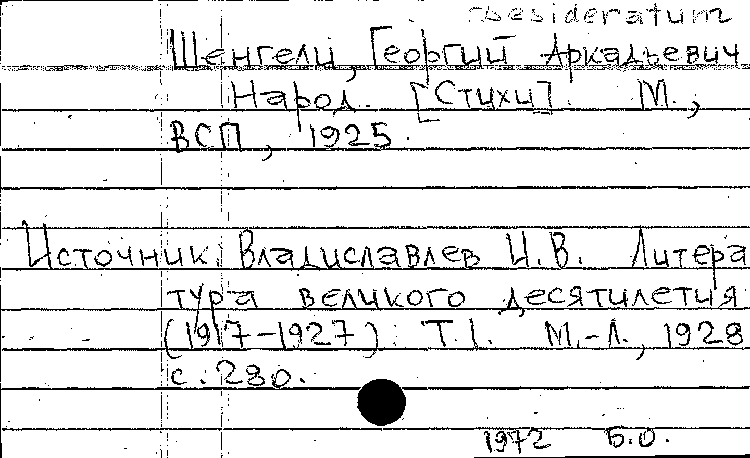 desideratum
Шенгели, Георгий Аркадьевич
Народ. [Стихи]. М.,
ВСП, 1925.
Источник: Владиславлев И.В. Литера
тура великого десятилетия
(1917-1927). Т.I. М.-Л., 1928
с. 280.
1972 Б.О.